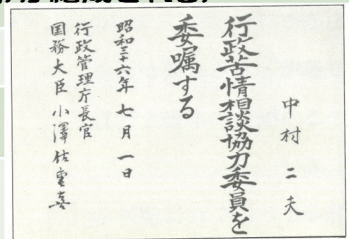 中村二夫
行政苦情相談協力委員を
委嘱する
昭和三十六年七月一日
行政管理庁長官
国務大臣小澤佐重喜